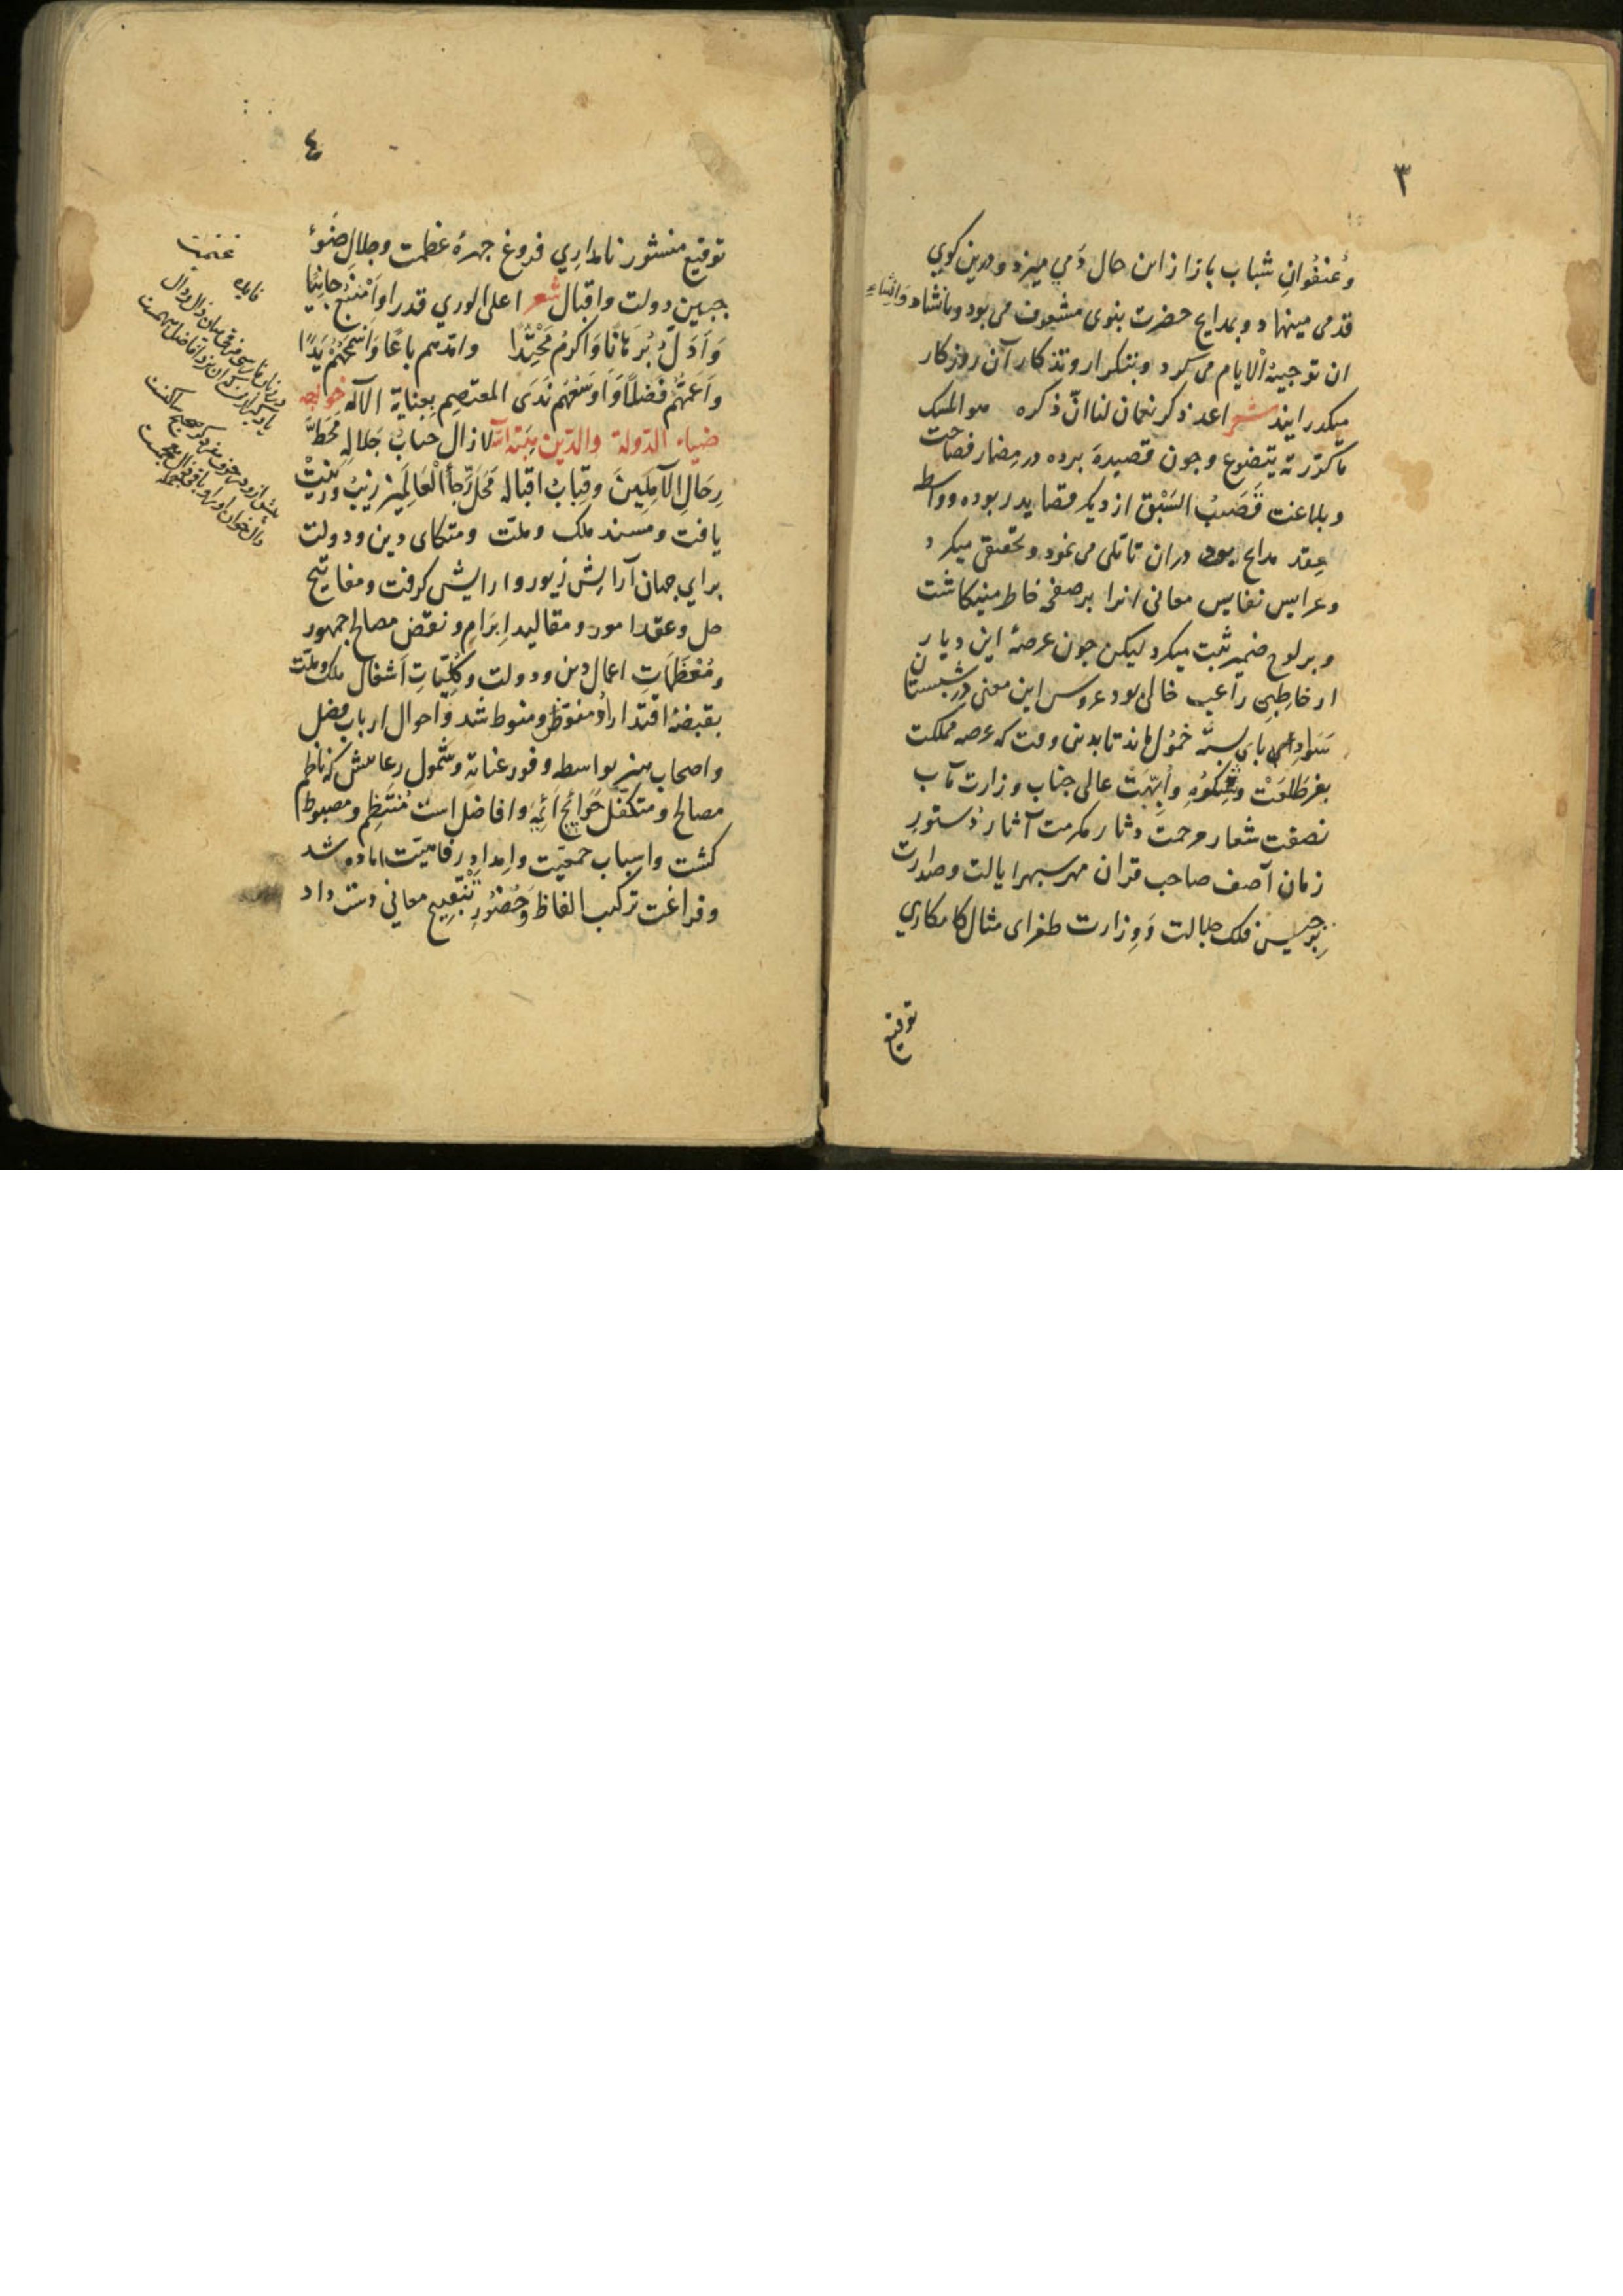 ٣
وعُنفُوانِ شباب باز از این حال دَمي میزد و درین کوي
قدمی مینهاد و بمدایح حضرت بنوی مشعوف می بود و بانشاد وَاِنشاءِ
ان توجیهُ الایام می کرد و بتکرار و تذکار آن روزکار
میکذرانید شعر اعد ذکر نعمان لنا انّ ذکره هو المسک
ما کرّرته یتضوع و جون قصیدهٔ برده در مِضمار فصاحت
و بلاغت قَصَبُ السَبْق از دیکر قصاید ربوده و واسطه
عِقد مدایح بود دران تاملی می نمود و تحقیق میکرد
و عرایس نفایس معانی انرا بر صفحه خاطر مینکاشت
و بر لوح ضمیر ثبت میکرد لیکن جون عرصهٔ این دیار
از خاطِبیِ راغب خالی بود عروس این معنی در شبستان
سَوادِ پای بستهٔ خمُول ماند تا بدین وقت که عرصه مملکت
بفر طَلعَتْ و شِکوُهِ و اُبَّهَتْ عالی جناب وزارت مآب
نصفت شعار مرحمت دثار مکرمت آثار دُستورِ
زمان آصف صاحب قران مهر سبهر ایالت و صدارت
بِرجیس فلک جلالت وَوِزارت طغرای مثال کامکاري
توقیع
٤
توقیع منشور نامداري فروغ جهرهٔ عظمت و جلال ضَوءُ
جبین دولت و اقبال شعر اعلی الوري قدرا وَاَمْنَعُ جانِبًا
وَاَدَلُّ بُرهانًا وَاَکرمُ مَحْتِدًا وامدهم باعًا وَاَسمَحُهُمْ یَدًا
وَاَعَمُّهُم فَضْلًا وَاَوسَعُهُم نَدَی المعتصِم بِعنایة الاله خواجه
ضیاء الدّولة والدّین هبة الله لا زال جناب جَلالِهِ مَحَطَّ
رِحَالِ الآمِلِینَ وقِبابُ اقباله مَحَلَّ رَجاْ الْعَالَمِیْنَ زیبْ و زینَتْ
یافت و مسند ملک و ملت و متکای دین و دولت
برای جهان آرایش زیور و ارایش کرفت و مفاتیح
حل و عقد امور و مقالید اِبرَام و نقض مصالح جمهور
ومُعْظَمَاتِ اعمال دین و دولت و کُلِّیّاتِ اَشغال ملک و ملّت
بقبضهٔ اقتدار اُو مفوّض و منوط شد و احوال ارباب فضل
و اصحاب هنر بواسطه وفور عنایة و شُمول رعایتش که ناظم
مصالح و متکفّل حوَائِج اَئمِه و افاضل است مُنتَظِم و مضبوط
کشت و اسباب جمعیّت و اِمدادِ رفاهیّت اماده شد
و فراغت ترکیب الفاظ وَحُضوُرِ تَنْقِیحِ معاني دست داد
غنیمت
فایده
در زبان فارسی فرق میان دال و ذال
یاد کیر از من که این نزد افاضل مبهمست
پیش ازو در حرف مفرد کر صحیح ساکنست
دال خوان او را و باقی ذال معجمست